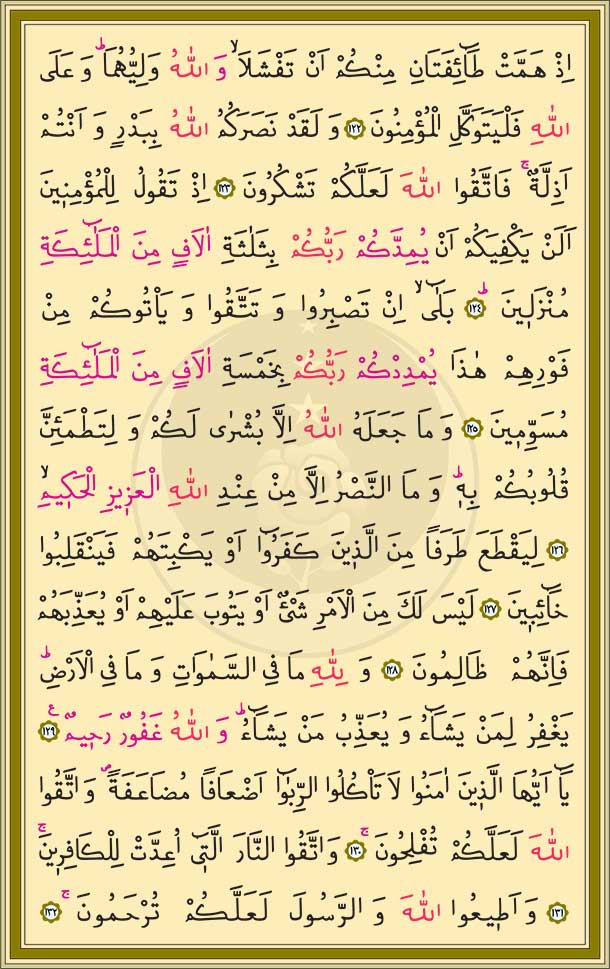 اِذْ هَمَّتْ طَٓائِفَتَانِ مِنْكُمْ اَنْ تَفْشَلَاۙ وَاللّٰهُ وَلِيُّهُمَاۜ وَعَلَى
اللّٰهِ فَلْيَتَوَكَّلِ الْمُؤْمِنُونَ ﴿١٢٢﴾ وَلَقَدْ نَصَرَكُمُ اللّٰهُ بِبَدْرٍ وَاَنْتُمْ
اَذِلَّةٌۚ فَاتَّقُوا اللّٰهَ لَعَلَّكُمْ تَشْكُرُونَ ﴿١٢٣﴾ اِذْ تَقُولُ لِلْمُؤْمِنٖينَ
اَلَنْ يَكْفِيَكُمْ اَنْ يُمِدَّكُمْ رَبُّكُمْ بِثَلٰثَةِ اٰلَافٍ مِنَ الْمَلٰٓئِكَةِ
مُنْزَلٖينَۜ ﴿١٢٤﴾ بَلٰٓىۙ اِنْ تَصْبِرُوا وَتَتَّقُوا وَيَاْتُوكُمْ مِنْ
فَوْرِهِمْ هٰذَا يُمْدِدْكُمْ رَبُّكُمْ بِخَمْسَةِ اٰلَافٍ مِنَ الْمَلٰٓئِكَةِ
مُسَوِّمٖينَ ﴿١٢٥﴾ وَمَا جَعَلَهُ اللّٰهُ اِلَّا بُشْرٰى لَكُمْ وَلِتَطْمَئِنَّ
قُلُوبُكُمْ بِهٖۜ وَمَا النَّصْرُ اِلَّا مِنْ عِنْدِ اللّٰهِ الْعَزٖيزِ الْحَكٖيمِۙ
﴿١٢٦﴾ لِيَقْطَعَ طَرَفًا مِنَ الَّذٖينَ كَفَرُٓوا اَوْ يَكْبِتَهُمْ فَيَنْقَلِبُوا
خَٓائِبٖينَ ﴿١٢٧﴾ لَيْسَ لَكَ مِنَ الْاَمْرِ شَيْءٌ اَوْ يَتُوبَ عَلَيْهِمْ اَوْ يُعَذِّبَهُمْ
فَاِنَّهُمْ ظَالِمُونَ ﴿١٢٨﴾ وَلِلّٰهِ مَا فِي السَّمٰوَاتِ وَمَا فِي الْاَرْضِۜ
يَغْفِرُ لِمَنْ يَشَٓاءُ وَيُعَذِّبُ مَنْ يَشَٓاءُۜ وَاللّٰهُ غَفُورٌ رَحٖيمٌ ع ﴿١٢٩﴾
يَٓا اَيُّهَا الَّذٖينَ اٰمَنُوا لَا تَاْكُلُوا الرِّبٰٓوا اَضْعَافًا مُضَاعَفَةًۖ وَاتَّقُوا
اللّٰهَ لَعَلَّكُمْ تُفْلِحُونَۚ ﴿١٣٠﴾ وَاتَّقُوا النَّارَ الَّتٖٓي اُعِدَّتْ لِلْكَافِرٖينَۚ
﴿١٣١﴾ وَاَطٖيعُوا اللّٰهَ وَالرَّسُولَ لَعَلَّكُمْ تُرْحَمُونَۚ ﴿١٣٢﴾